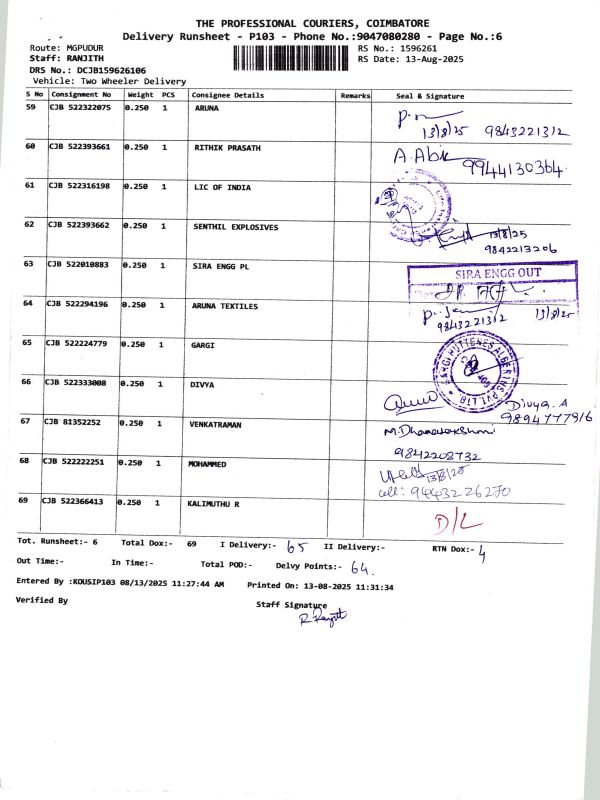 THE PROFESSIONAL COURIERS, COIMBATORE
Delivery Runsheet - P103 - Phone No.:9047080280 - Page No.:6
Route: MGPUDUR RS No.: 1596261
Staff: RANJITH RS Date: 13-Aug-2025
DRS No.: DCJB159626106
Vehicle: Two Wheeler Delivery
S No Consignment No Weight PCS Consignee Details Remarks Seal & Signature
59 CJB 522322075 0.250 1 ARUNA
13/8/25 9843221312
60 CJB 522393661 0.250 1 RITHIK PRASATH A. Abi
9944130364
61 CJB 522316198 0.250 1 LIC OF INDIA
62 CJB 522393662 0.250 1 SENTHIL EXPLOSIVES 13/8/25
9842213206
63 CJB 522010883 0.250 1 SIRA ENGG PL SIRA ENGG OUT
64 CJB 522294196 0.250 1 ARUNA TEXTILES 13/8/25
9843221312
65 CJB 522224779 0.250 1 GARGI GARGI HUTTENES ALBERTUS PVT. LTD.
66 CJB 522333008 0.250 1 DIVYA Divya. A
9894777916
67 CJB 81352252 0.250 1 VENKATRAMAN M. Dhanalakshmi
9842208732
68 CJB 522222251 0.250 1 MOHAMMED 13/8/25
cell: 9443226270
69 CJB 522366413 0.250 1 KALIMUTHU R D/L
Tot. Runsheet:- 6 Total Dox:- 69 I Delivery:- 65 II Delivery:- RTN Dox:- 4
Out Time:- In Time:- Total POD:- Delvy Points:- 64.
Entered By :KOUSIP103 08/13/2025 11:27:44 AM Printed On: 13-08-2025 11:31:34
Verified By Staff Signature